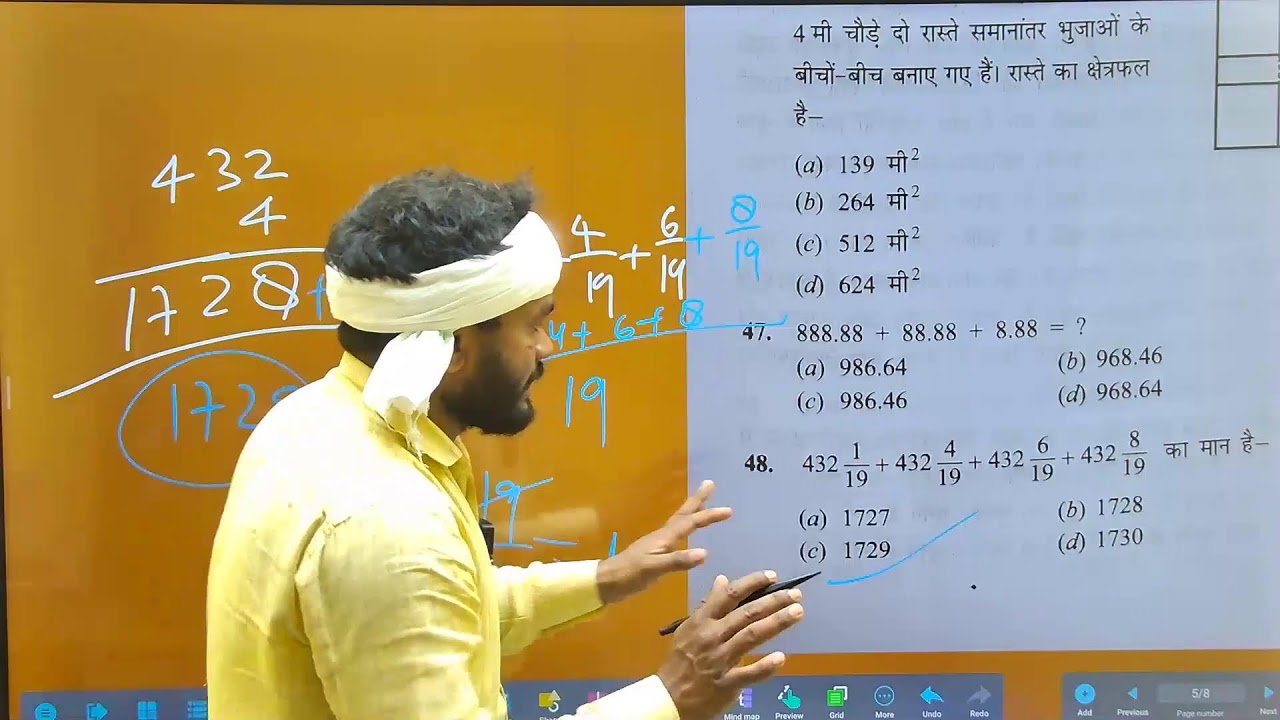 432
4
1728+
172
4/19 + 6/19 + 8/19
4 + 6 + 8
19
19
4 मी चौड़े दो रास्ते समानांतर भुजाओं के
बीचों-बीच बनाए गए हैं। रास्ते का क्षेत्रफल
है–
(a) 139 मी²
(b) 264 मी²
(c) 512 मी²
(d) 624 मी²
47. 888.88 + 88.88 + 8.88 = ?
(a) 986.64 (b) 968.46
(c) 986.46 (d) 968.64
48. 432 1/19 + 432 4/19 + 432 6/19 + 432 8/19 का मान है–
(a) 1727 (b) 1728
(c) 1729 (d) 1730
Mind map Preview Grid More Undo Redo Add Previous 5/8 Page number Next